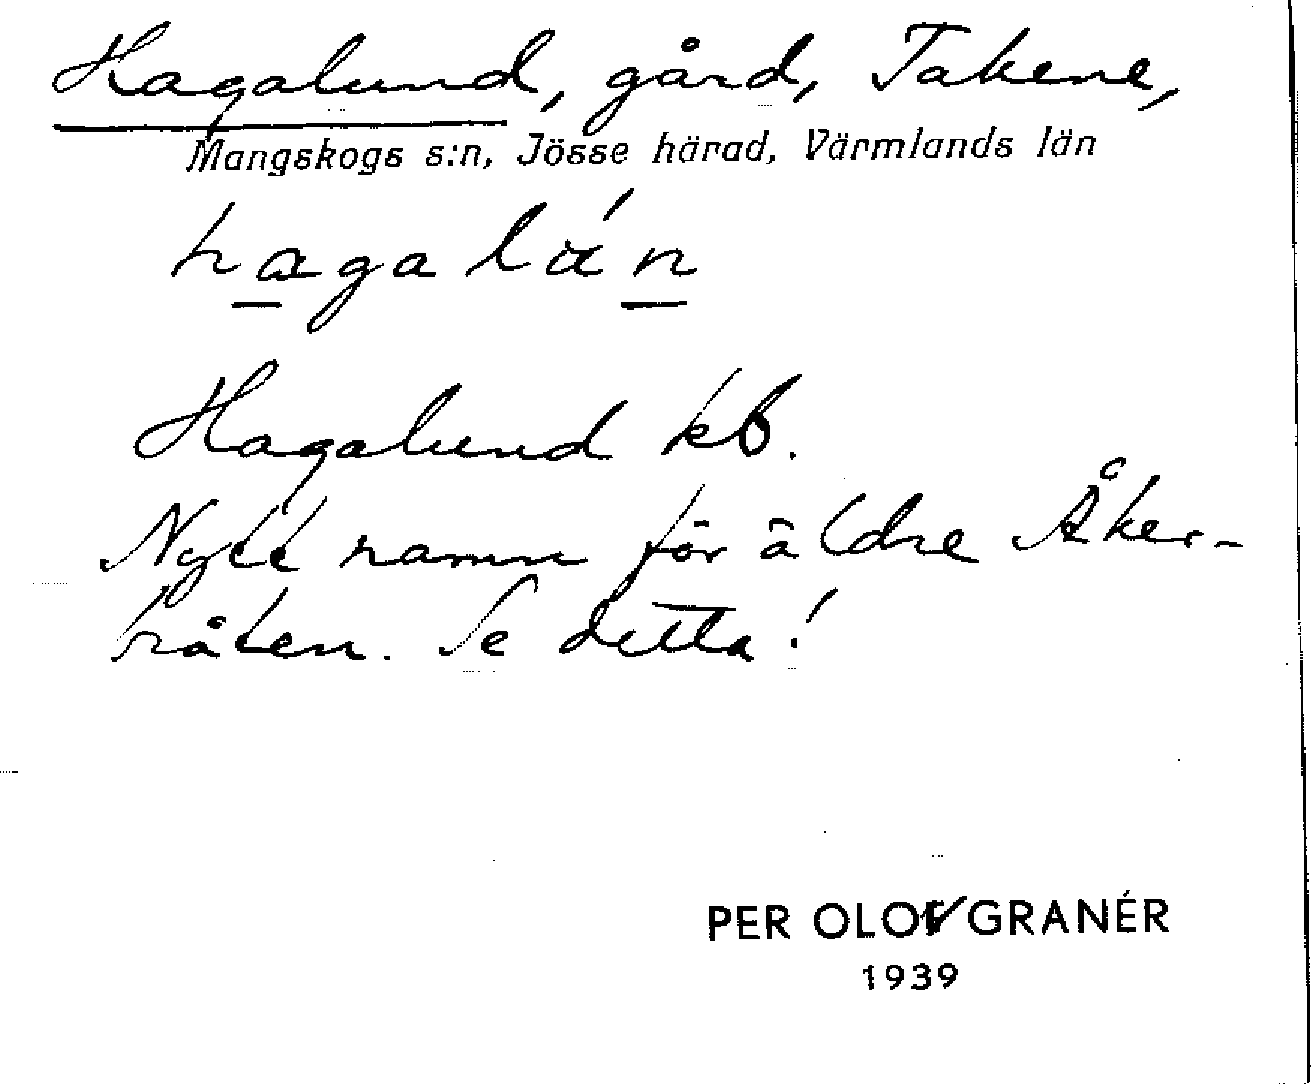 Hagalund, gård, Takene,
Mangskogs s:n, Jösse härad, Värmlands län
hagalán
Hagalund kb.
Nytt namn för äldre Åker-
bråten. Se detta!
PER OLOV GRANÉR
1939